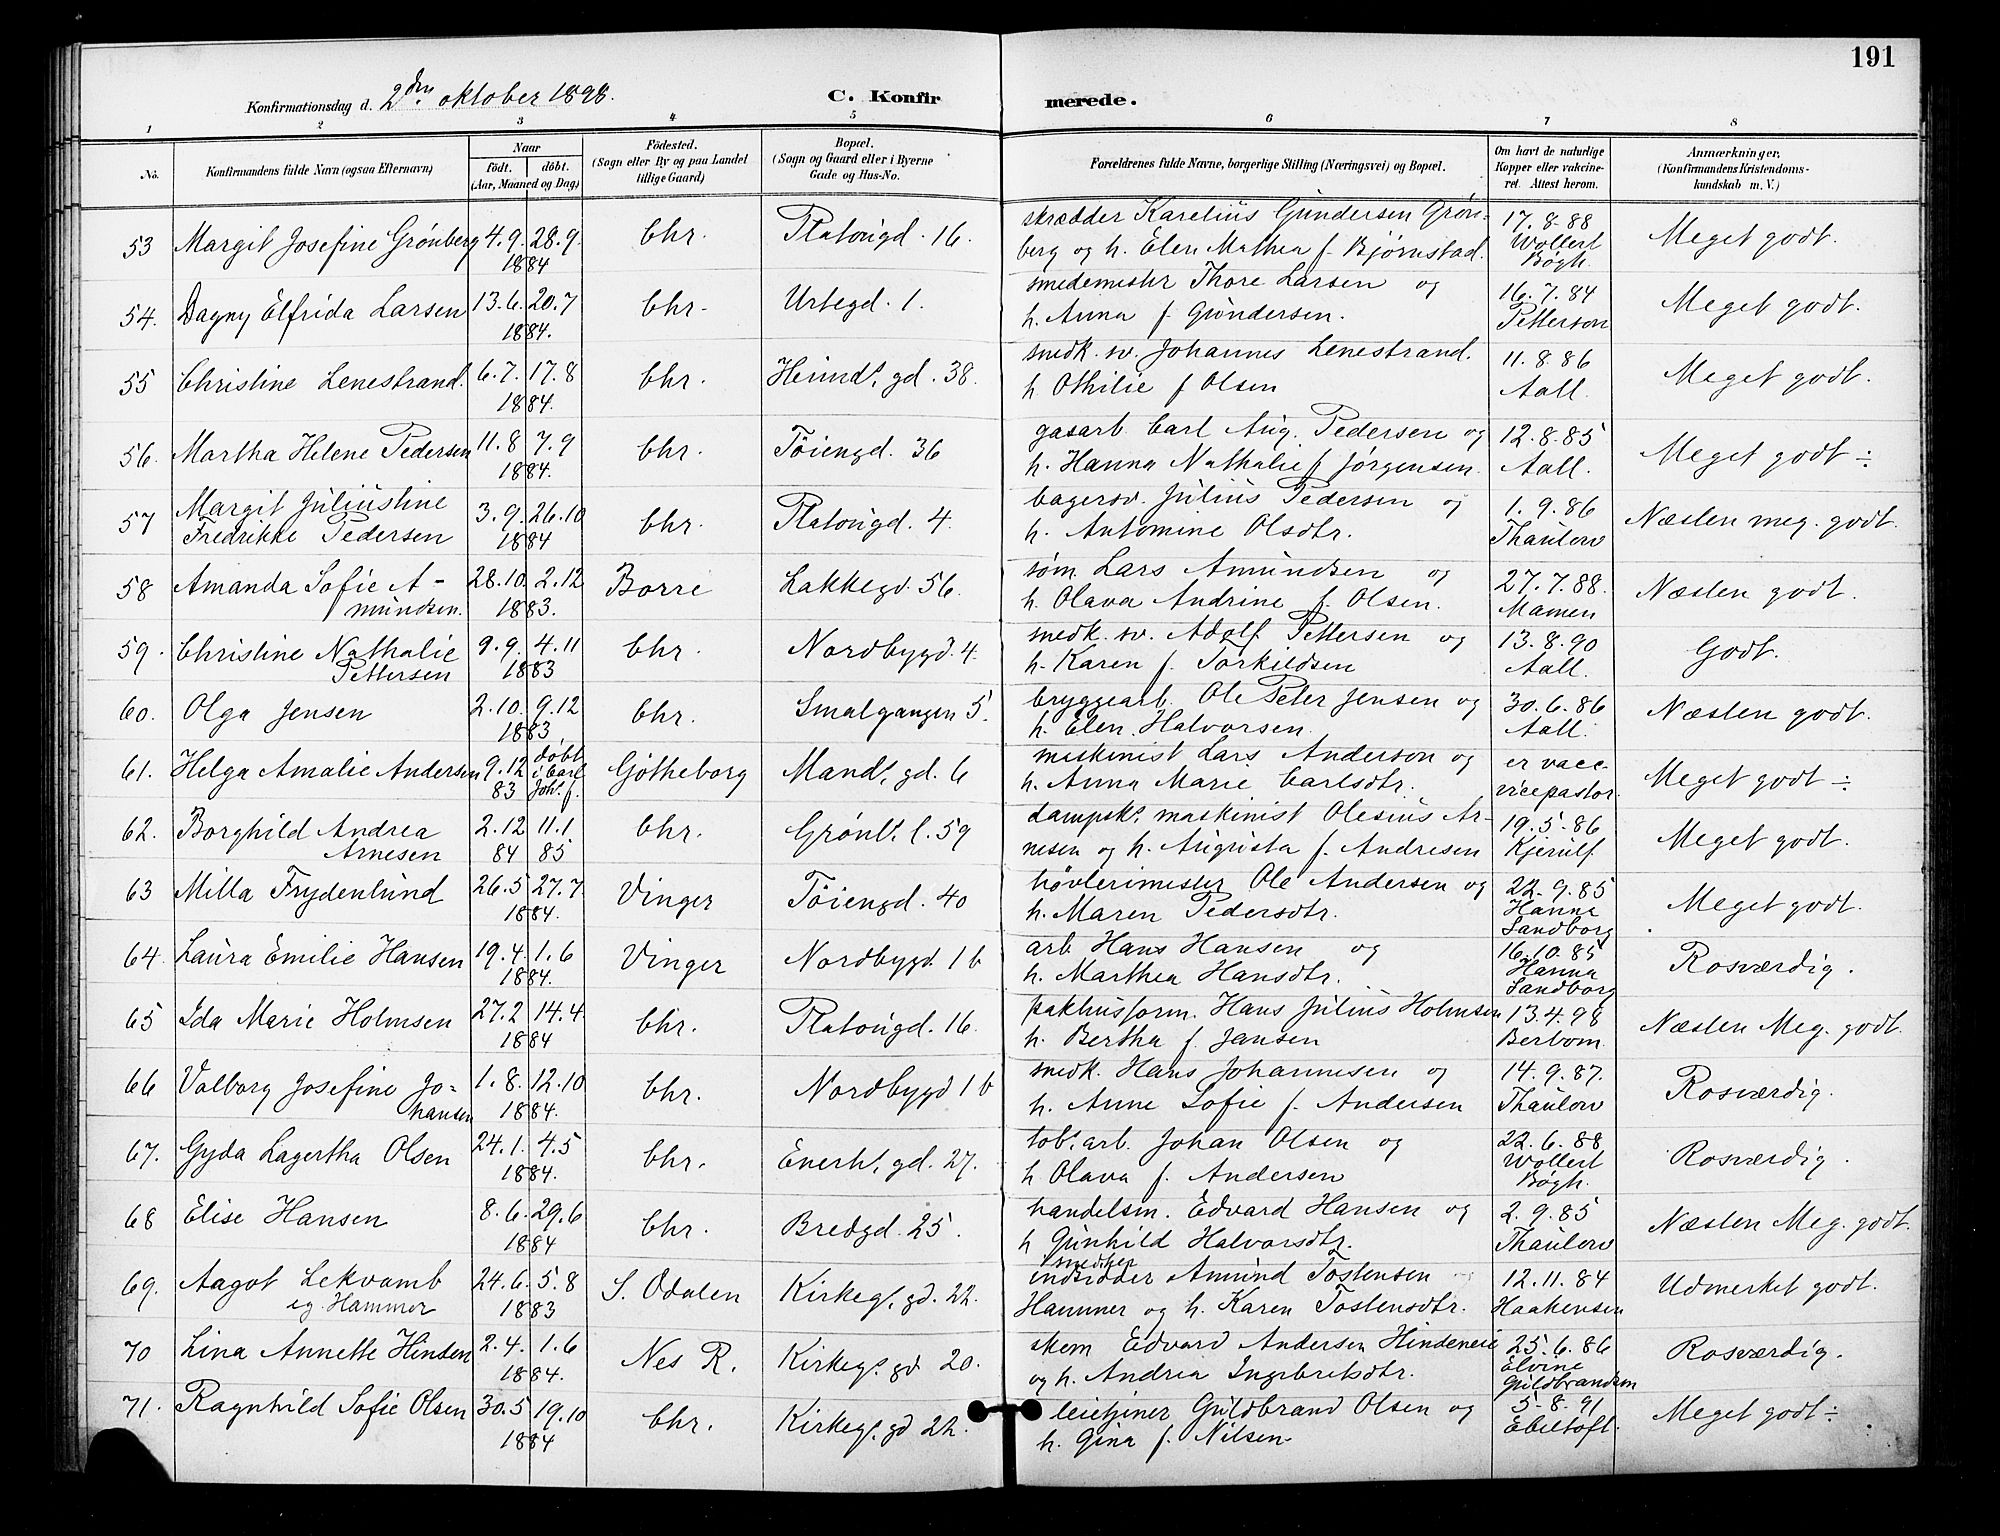 191
Konfirmationsdag d. 2den oktober 1898.
C. Konfirmerede.
1 2 3 4 5 6 7 8
No.
Konfirmandens fulde Navn (ogsaa Efternavn)
Naar
födt. döbt.
(Aar, Maaned og Dag)
Födested.
(Sogn eller By og paa Landet
tillige Gaard)
Bopæl.
(Sogn og Gaard eller i Byerne
Gade og Hus-No.
Forældrenes fulde Navne, borgerlige Stilling (Næringsvei) og Bopæl.
Om havt de naturlige
Kopper eller vakcine-
ret. Attest herom.
Anmærkninger,
(Konfirmandens Kristendoms-
kundskab m. V.)
53 Margit Josefine Grönberg 4.9. 28.9. 1884 Chr. Platougd. 16. skrædder Karelius Gundersen Grön-
berg og h. Elen Mathea f. Bjørnstad. 17.8.88 Wollert Bögh. Meget godt.
54. Dagny Elfrida Larsen 13.6. 20.7 1884. Chr. Urtegd. 1. smedemester Thore Larsen og
h. Anna f. Gundersen. 16.7.84 Petterson Meget godt.
55 Christine Lenestrand. 6.7. 17.8 1884. Chr. Heimds. gd. 38. snedk. sv. Johannes Lenestrand.
h. Othilie f Olsen 11.8.86 Aall. Meget godt.
56. Martha Helene Pedersen 11.8 7.9 1884. Chr. Töiengd. 36 gasarb. Carl Aug. Pedersen og
h. Hanna Nathalie f Jørgensen. 12.8.85 Aall. Meget godt ÷
57 Margit Juliustine
Fredrikke Pedersen 3.9. 26.10 1884 Chr. Platougd. 4. bagersv. Julius Pedersen og
h. Antomine Olsdtr. 1.9.86 Thaulow Næsten meg. godt.
58 Amanda Sofie A-
mundsen. 28.10. 2.12 1883. Borre Lakkegd. 56. søm. Lars Amundsen og
h. Olava Andrine f. Olsen. 27.7.88. Mamen Næsten godt.
59. Christine Nathalie
Pettersen 9.9. 4.11 1883 Chr. Nordbygd. 4. snedk. sv. Adolf Pettersen og
h. Karen f. Torkildsen 13.8.90 Aall. Godt.
60. Olga Jensen 2.10. 9.12 1883 Chr. Smalgangen 5. bryggearb. Ole Peter Jensen og
h. Elen Halvorsen. 30.6.86 Aall. Næsten godt.
61. Helga Amalie Andersen 9.12 83 döbt i Carl Johs. f. Götheborg Mands. gd. 6 maskinist Lars Anderson og
h. Anna Marie Carlsdtr. er vacc. vicepastor. Meget godt ÷
62. Borghild Andrea
Arnesen 2.12 84 11.1. 85 Chr. Grönls. l. 59 dampsks. maskinist Olesius Ar-
nesen og h. Augusta f. Andresen 19.5.86 Kjerulf. Meget godt.
63 Milla Frydenlund 26.5 27.7 1884. Vinger Töiengd. 40 høvlerimester Ole Andersen og
h. Maren Pedersdtr. 22.9.85 Hanna Sandborg Meget godt.
64. Laura Emilie Hansen 19.4. 1.6 1884. Vinger Nordbygd. 1 b arb. Hans Hansen og
h. Marthea Hansdtr. 16.10.85 Hanna Sandborg Rosværdig.
65 Ida Marie Holmsen 27.2 14.4. 1884 Chr. Platougd. 16. pakhusform. Hans Julius Holmsen
h. Bertha f. Jansen 13.4.98 Berbom. Næsten Meg. godt.
66 Valborg Josefine Jo-
hansen 1.8. 12.10 1884. Chr. Nordbygd 1 b snedk. Hans Johannesen og
h. Anne Sofie f. Andersen 14.9.87. Thaulow Rosværdig.
67. Gyda Lagertha Olsen 24.1. 4.5 1884. Chr. Enerhs. gd. 27. tobs. arb. Johan Olsen og
h Olava f. Andersen 22.6.88 Wollert Bögh. Rosværdig.
68 Elise Hansen 8.6. 29.6 1884 Chr. Bredgd. 25. handelsm. Edvard Hansen og
h Gunhild Halvorsdtr. 2.9.85 Thaulow Næsten Meg. godt.
69. Aagot Lekvamb
eg. Hammer 24.6. 5.8 1883 S. Odalen Kirkegs. gd. 22. Amund Tostensen
Hammer og h. Karen Tostensdtr. 12.11.84 Haakensen Udmerket godt.
70 Lina Annette Hinden 2.4. 1.6 1884. Nes R. Kirkegs. gd 20. skom Edvard Andersen Hindeneie
og h. Andrea Ingebretsdtr. 25.6.86 Elvine Guldbrandsen Rosværdig.
71. Ragnhild Sofie Olsen 30.5 19.10 1884 Chr. Kirkegs. gd 22. leietjener Guldbrand Olsen og
h. Gina f. Nilsen 5-8.91 Ebeltoft. Meget godt ÷